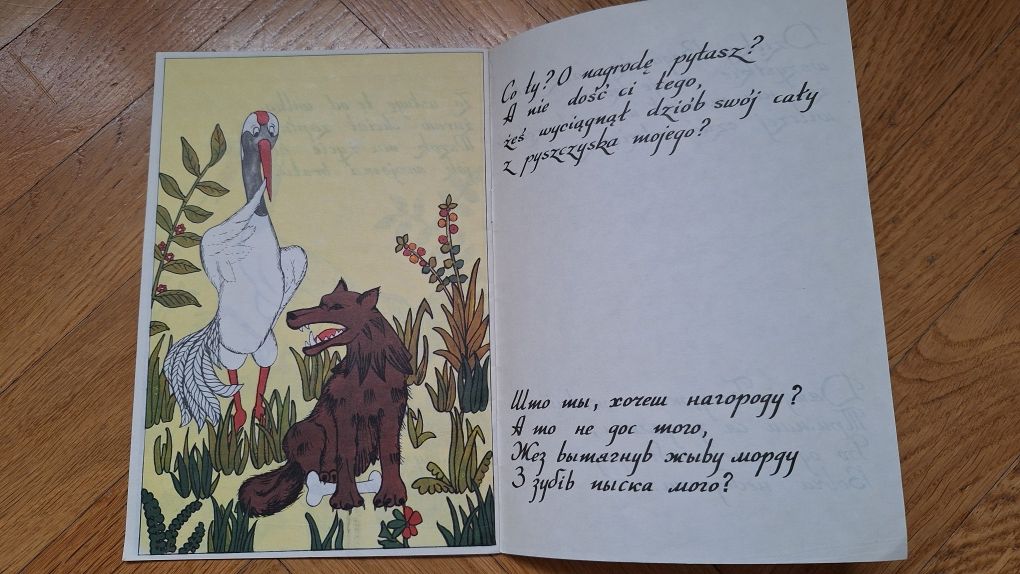 Co ty? O nagrodę pytasz?
A nie dość ci tego,
żeś wyciągnął dziób swój cały
z pyszczyska mojego?
Што ты, хочеш нагороду?
А то не дос того,
Жез вытягнув жыву морду
З зубів пыска мого?